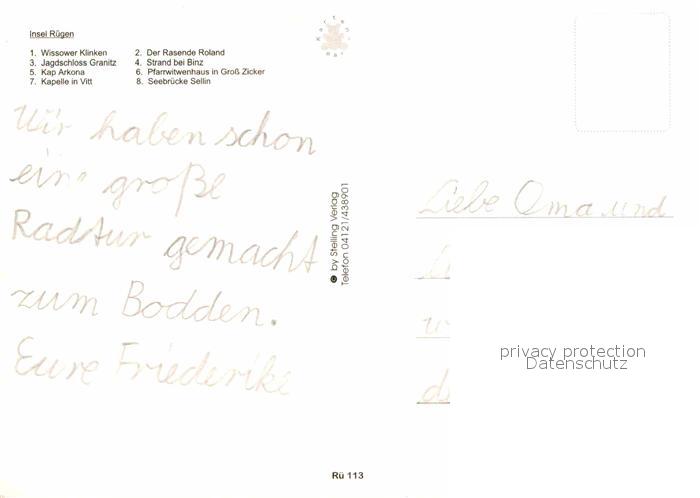 Insel Rügen
1. Wissower Klinken 2. Der Rasende Roland
3. Jagdschloss Granitz 4. Strand bei Binz
5. Kap Arkona 6. Pfarrwitwenhaus in Groß Zicker
7. Kapelle in Vitt 8. Seebrücke Sellin
Wir haben schon
eine große
Radtur gemacht
zum Bodden.
Eure Friederike
© by Stelling Verlag
Telefon 04121/438901
Liebe Oma und
privacy protection
Datenschutz
Rü 113